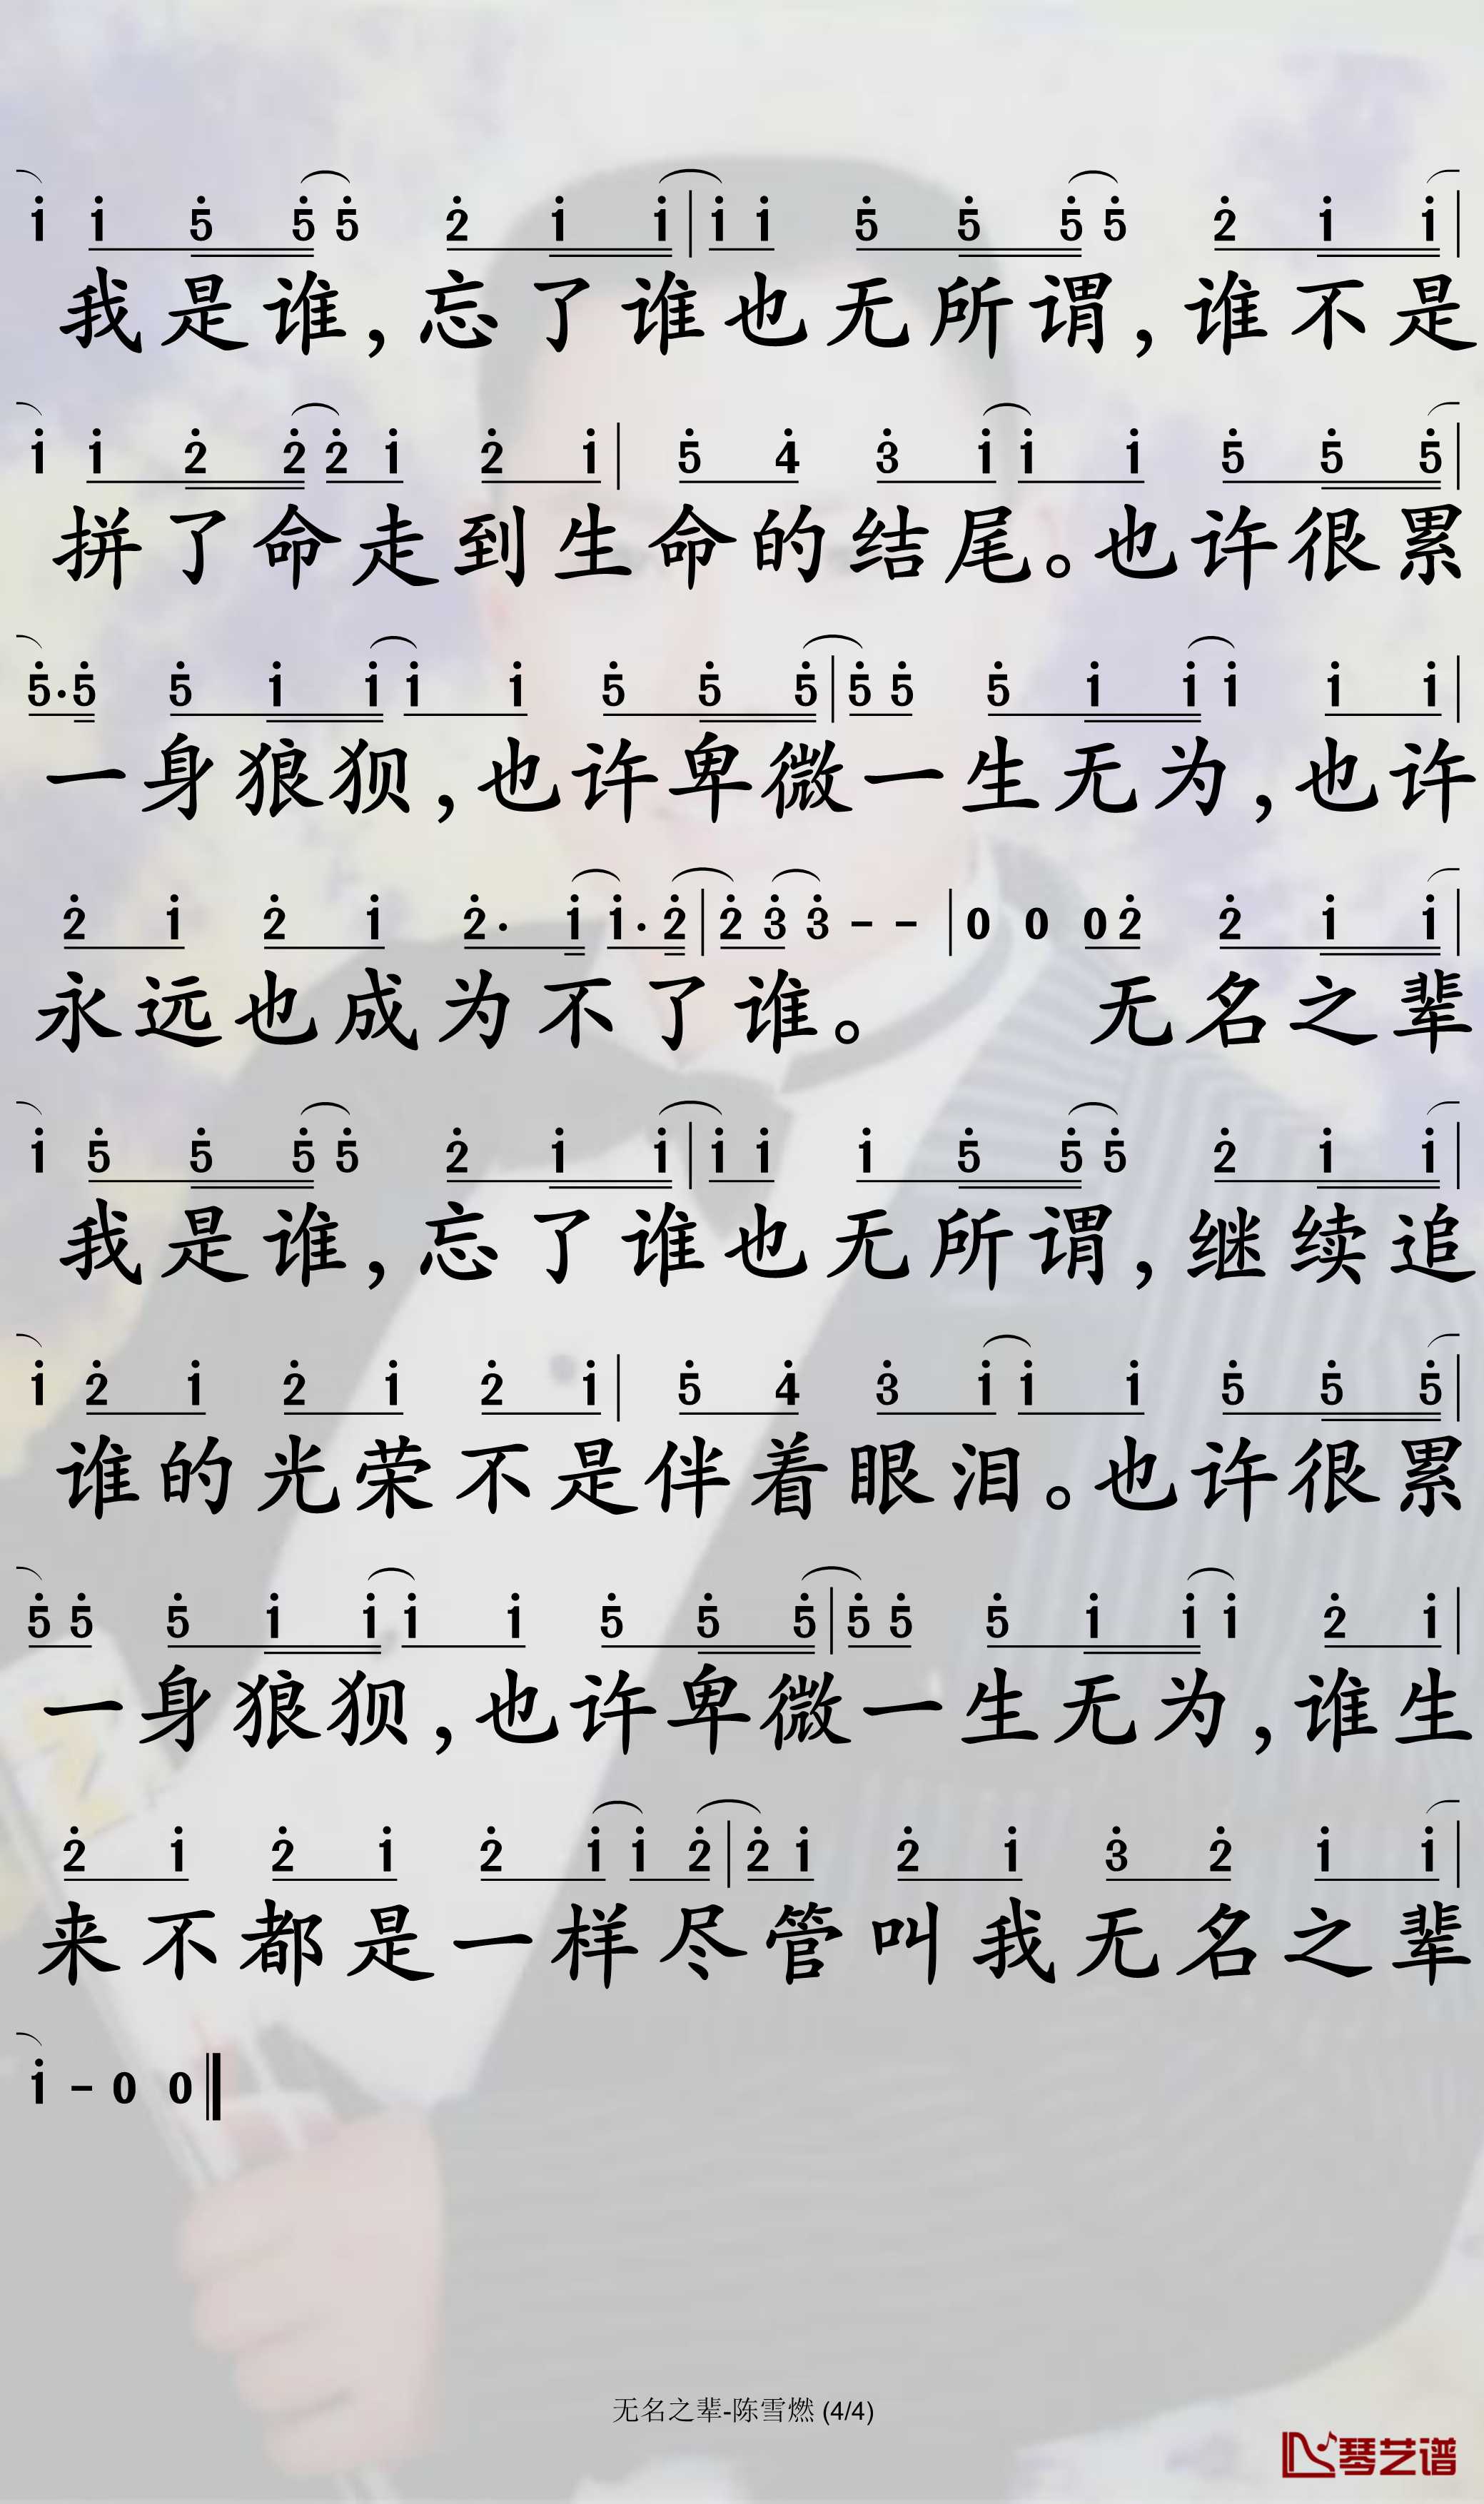 1 1 5 5 5 2 1 1 | 1 1 5 5 5 5 2 1 1 |
我是谁,忘了谁也无所谓,谁不是
1 1 2 2 2 1 2 1 | 5 4 3 1 1 1 5 5 5 |
拼了命走到生命的结尾。也许很累
5·5 5 1 1 1 1 5 5 5 | 5 5 5 1 1 1 1 1 |
一身狼狈,也许卑微一生无为,也许
2 1 2 1 2· 1 1· 2 | 2 3 3 - - | 0 0 0 2 2 1 1 |
永远也成为不了谁。 无名之辈
1 5 5 5 5 2 1 1 | 1 1 1 5 5 5 2 1 1 |
我是谁,忘了谁也无所谓,继续追
1 2 1 2 1 2 1 | 5 4 3 1 1 1 5 5 5 |
谁的光荣不是伴着眼泪。也许很累
5 5 5 1 1 1 1 5 5 5 | 5 5 5 1 1 1 2 1 |
一身狼狈,也许卑微一生无为,谁生
2 1 2 1 2 1 1 2 | 2 1 2 1 3 2 1 1 |
来不都是一样尽管叫我无名之辈
1 - 0 0
无名之辈-陈雪燃 (4/4)
琴艺谱